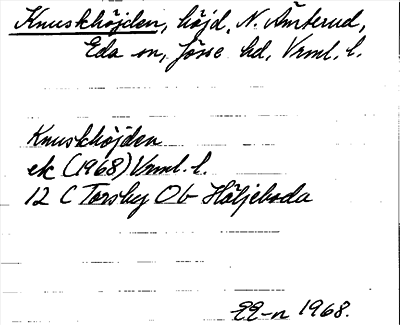 Knuskhöjden, höjd, N. Åmterud,
Eda sn, Jösse hd, Vrml. l.
Knuskhöjden
ek (1968) Vrml. l.
12 C Torsby Ob Häljeboda
EE-n 1968.